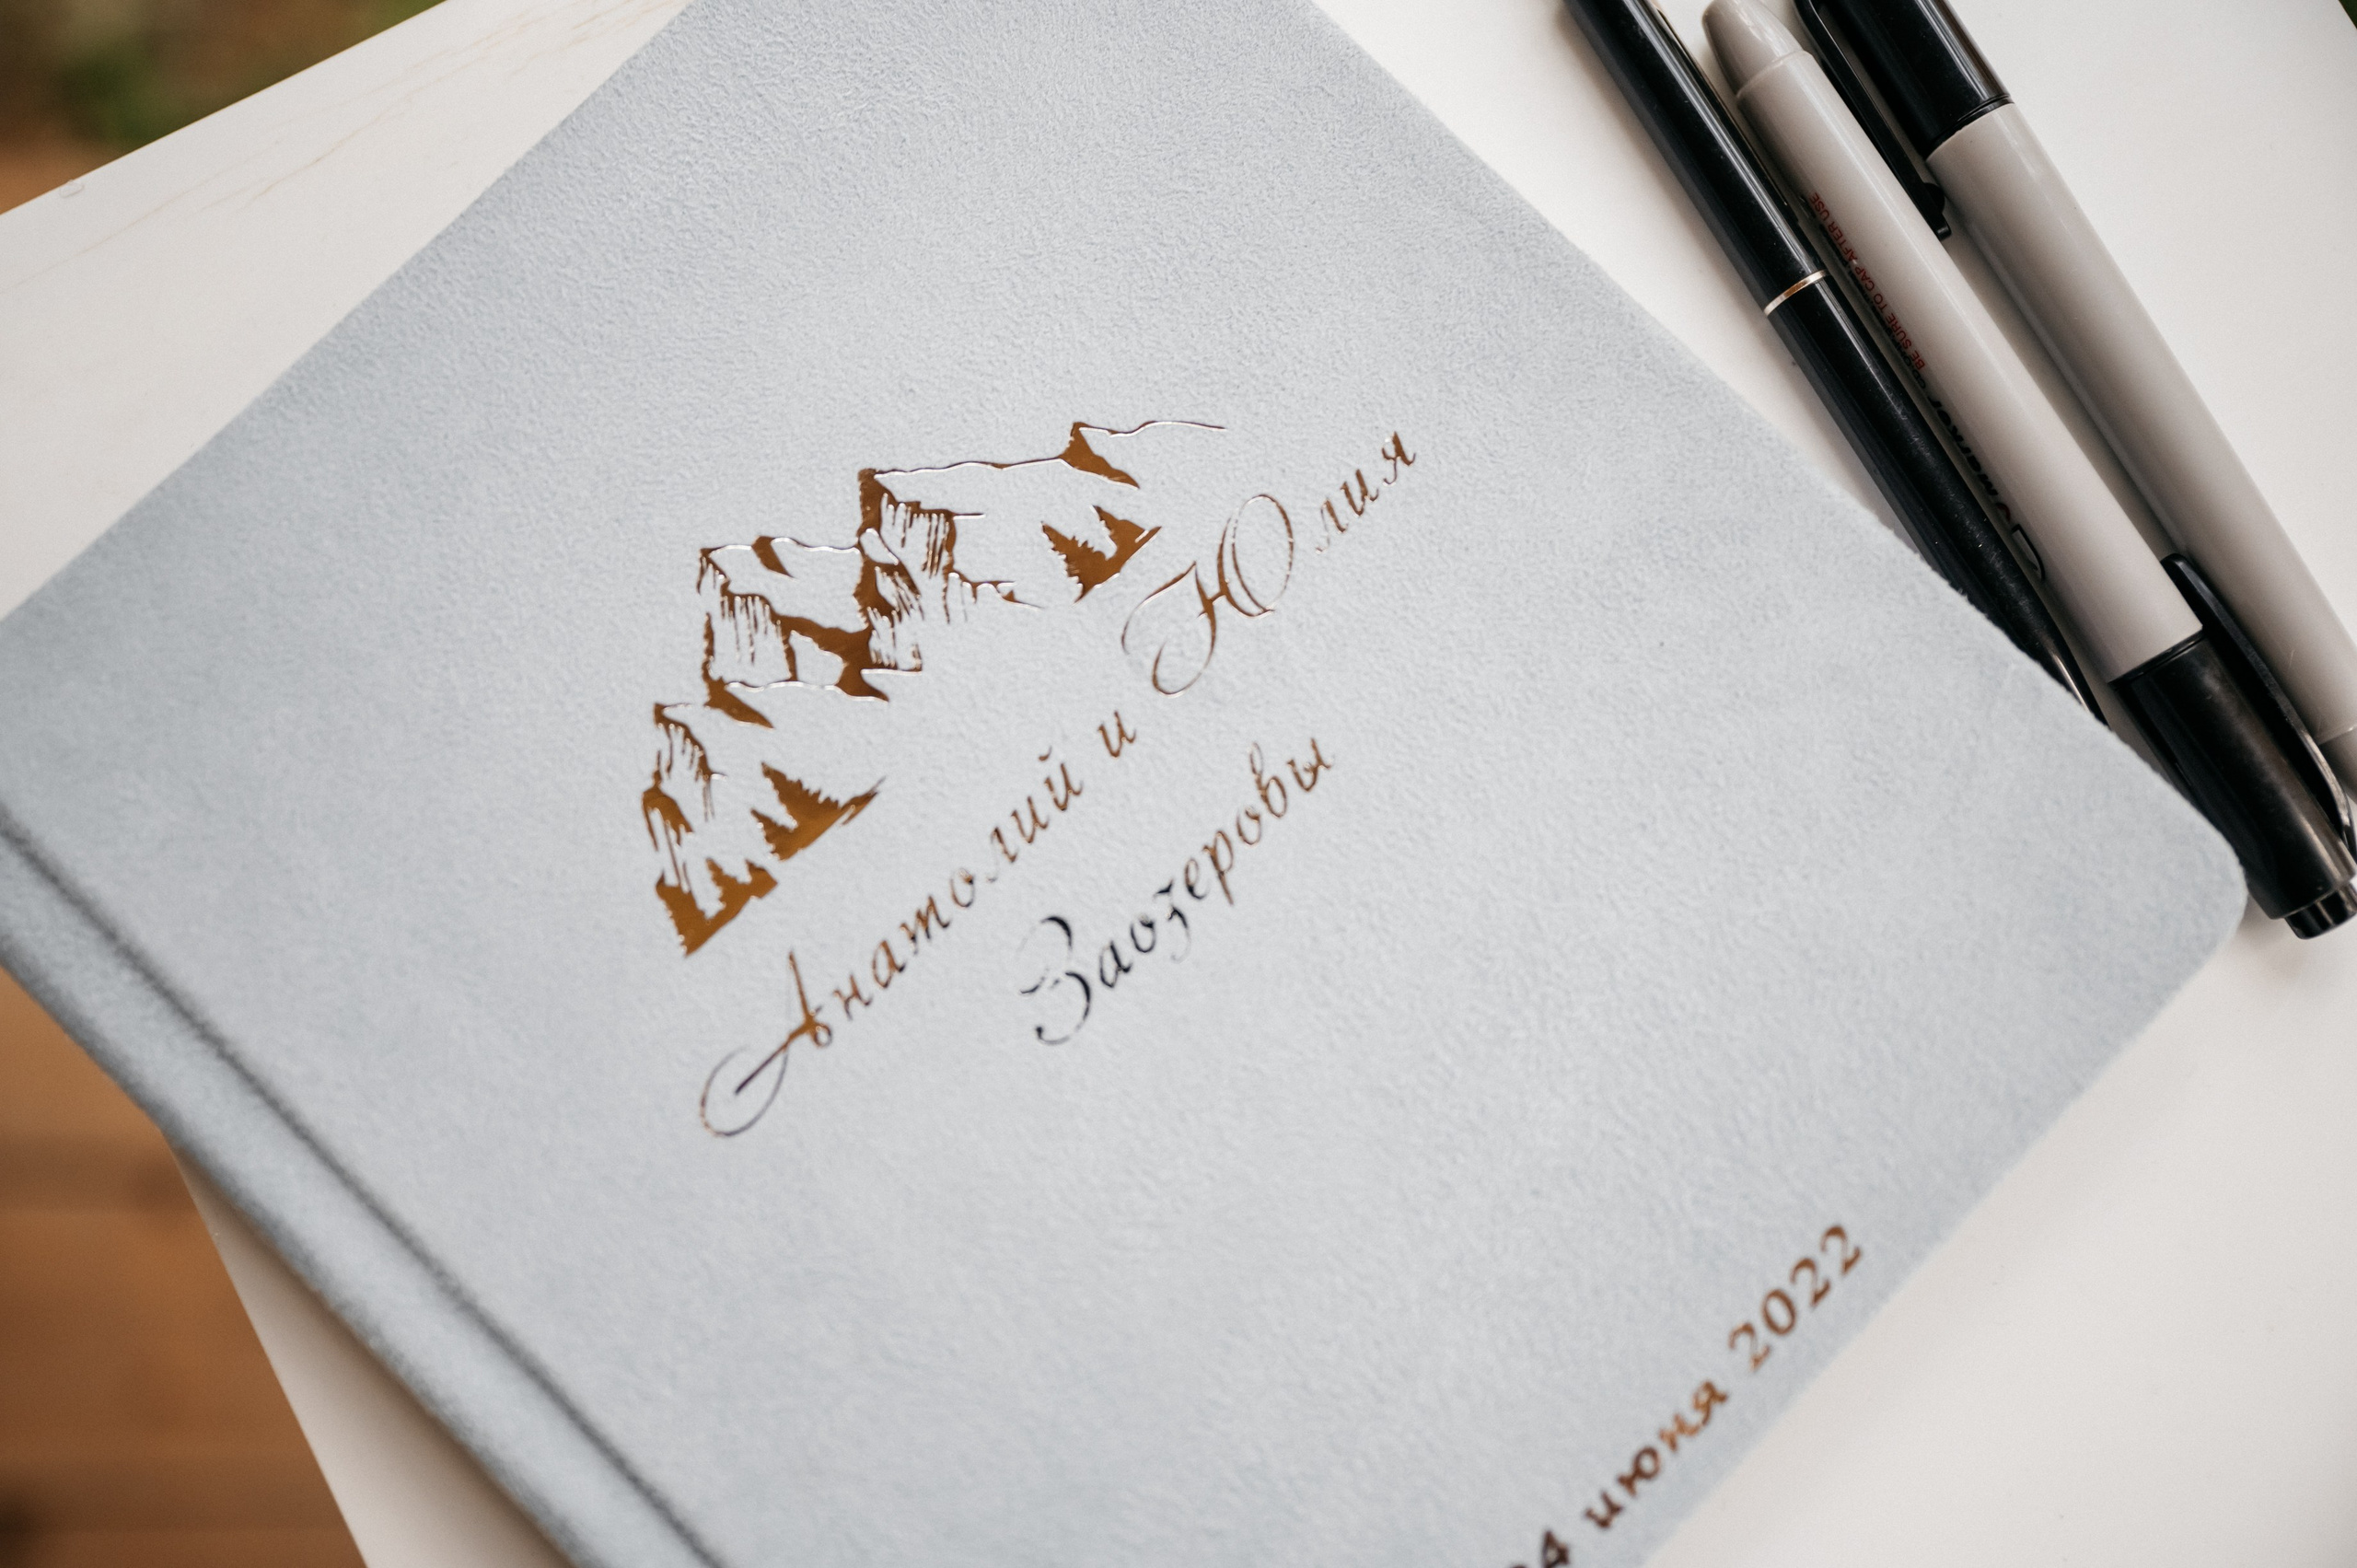 Анатолий и Юлия
Заозеровы
04 июня 2022
BE SURE TO CAP AFTER USE